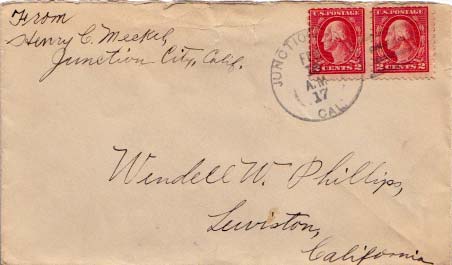 From
Henry C. Meckel,
Junction City, Calif.
U.S. POSTAGE
2 CENTS 2
U.S. POSTAGE
2 CENTS 2
JUNCTION
A.M.
17
CAL.
Wendell W. Phillips,
Lewiston,
California